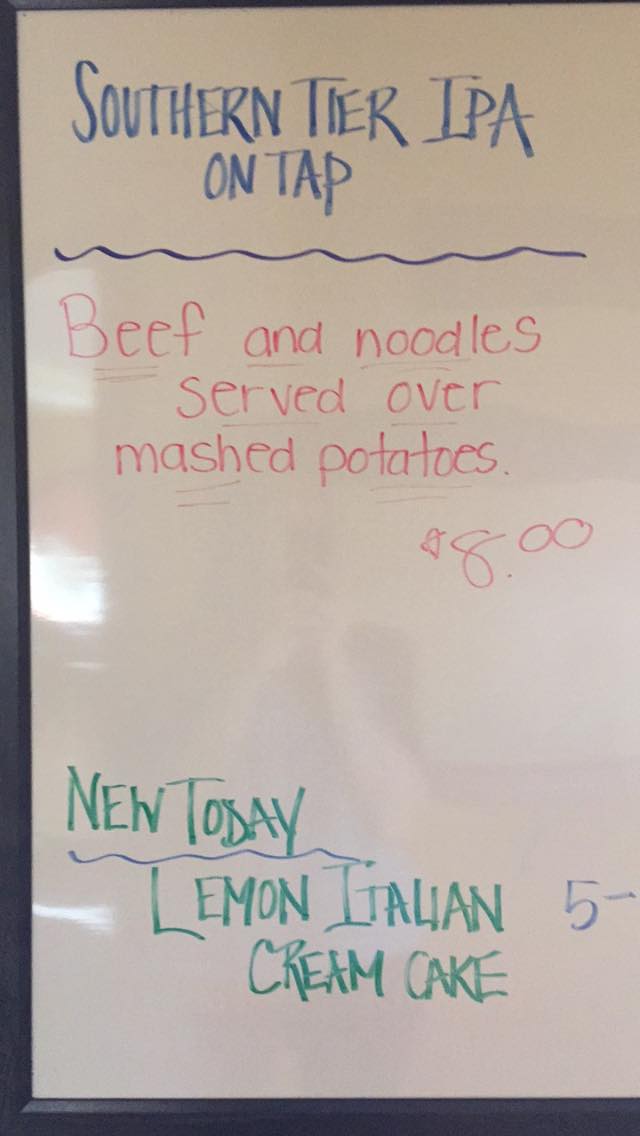 SOUTHERN TIER IPA
ON TAP
Beef and noodles
served over
mashed potatoes.
$8.00
NEW TODAY
LEMON ITALIAN 5-
CREAM CAKE